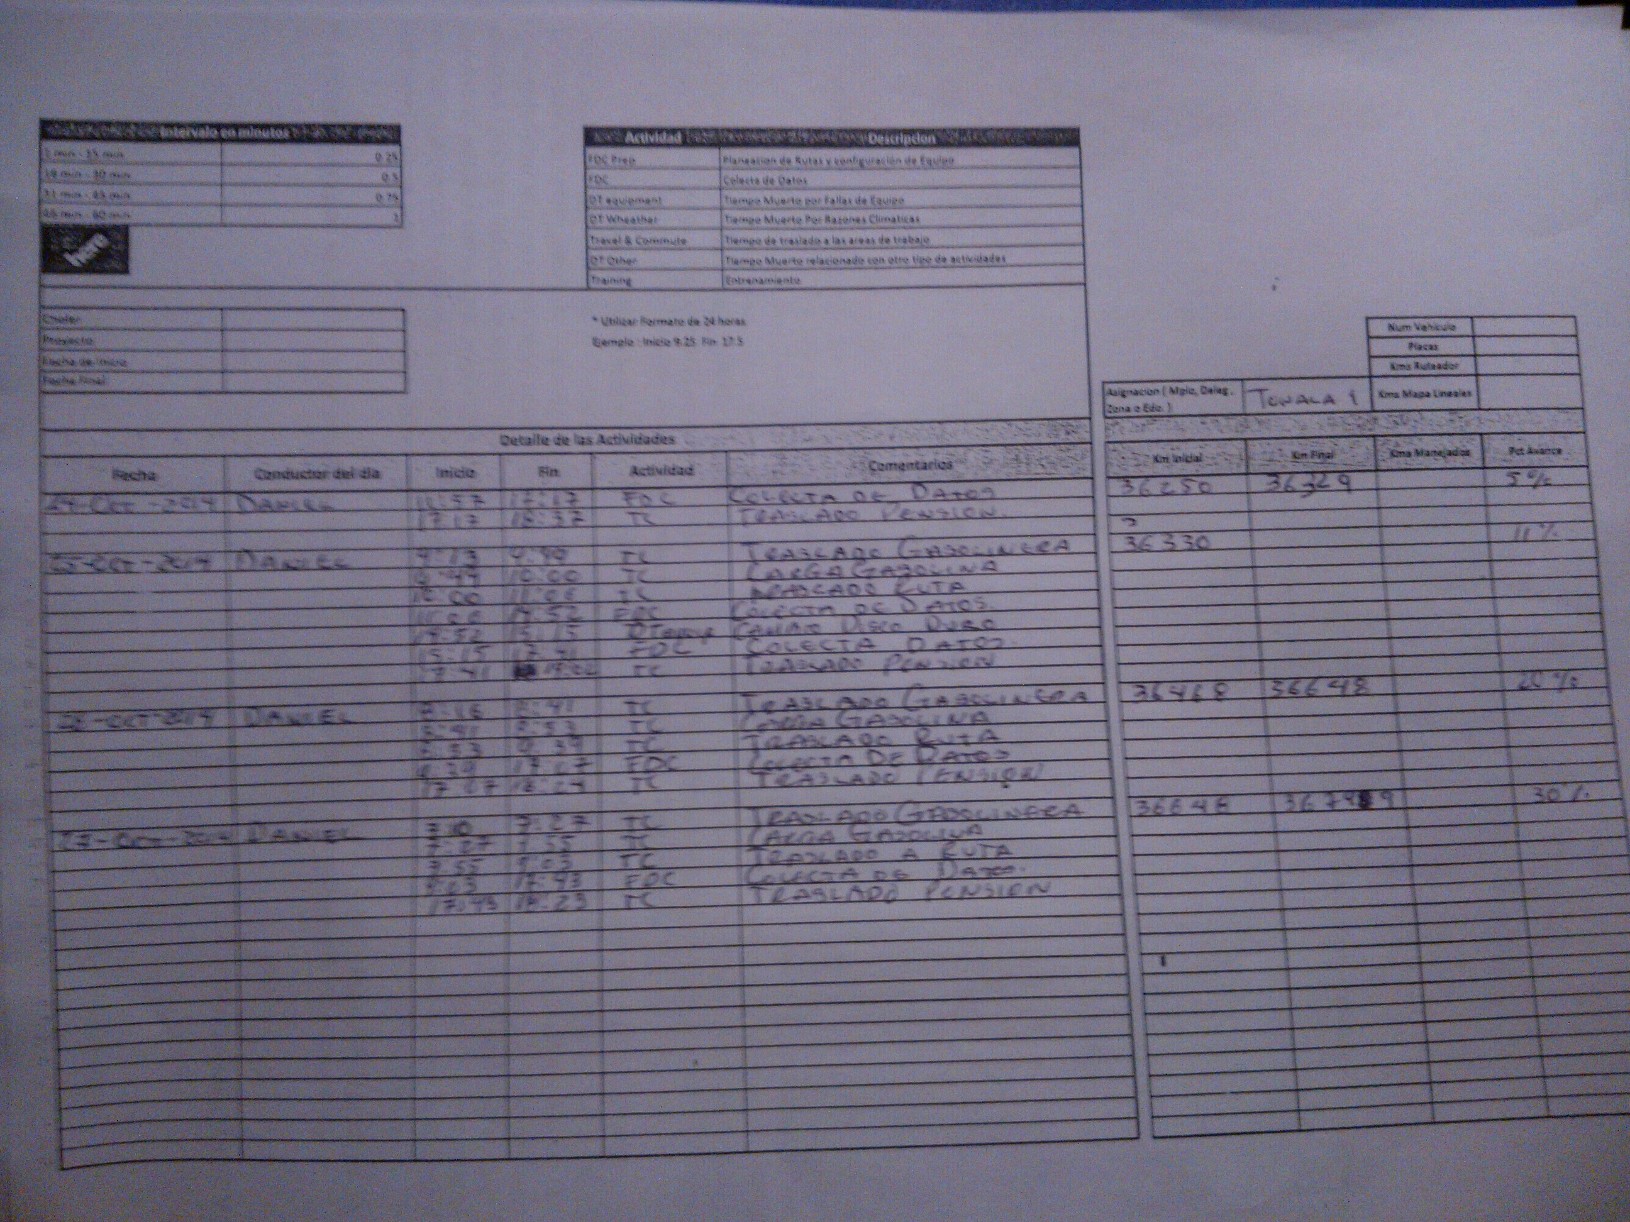 Intervalo en minutos
1 min - 15 min 0.25
16 min - 30 min 0.5
31 min - 45 min 0.75
46 min - 60 min 1
here
Actividad Descripcion
FDC Prep Planeacion de Rutas y configuración de Equipo
FDC Colecta de Datos
DT equipment Tiempo Muerto por Fallas de Equipo
DT Wheather Tiempo Muerto Por Razones Climaticas
Travel & Commute Tiempo de traslado a las areas de trabajo
DT Other Tiempo Muerto relacionado con otro tipo de actividades
Training Entrenamiento
Chofer
Proyecto
Fecha de Inicio
Fecha Final
* Utilizar Formato de 24 horas
Ejemplo : Inicio 9.25 Fin 17.5
Num Vehiculo
Placas
Kms Ruteador
Asignacion ( Mpio, Deleg, Zona o Edo. ) TONALA 1 Kms Mapa Lineales
Detalle de las Actividades
Fecha Conductor del dia Inicio Fin Actividad Comentarios Km Inicial Km Final Kms Manejados Pct Avance
24-OCT-2014 DANIEL 11:57 17:17 FDC COLECTA DE DATOS 36250 36329 5%
17:17 18:37 TC TRASLADO PENSION.
25-OCT-2014 DANIEL 9:13 9:49 TC TRASLADO GASOLINERA 36330 11%
9:49 10:00 TC CARGA GASOLINA
10:00 11:06 TC TRASLADO RUTA
11:06 14:52 FDC COLECTA DE DATOS.
14:52 15:15 CAMBIO DISCO DURO
15:15 17:41 FDC COLECTA DATOS.
17:41 TC TRASLADO PENSION
26-OCT-2014 DANIEL 8:16 8:41 TC TRASLADO GASOLINERA 36468 36648 20%
8:41 8:53 TC CARGA GASOLINA
8:53 9:39 TC TRASLADO RUTA
9:39 17:07 FDC COLECTA DE DATOS
17:07 18:24 TC TRASLADO PENSION
27-OCT-2014 DANIEL 7:27 TC TRASLADO GASOLINERA 36648 30%
7:27 7:55 TC CARGA GASOLINA
7:55 9:03 TC TRASLADO A RUTA
9:03 17:43 FDC COLECTA DE DATOS.
17:43 18:23 TC TRASLADO PENSION